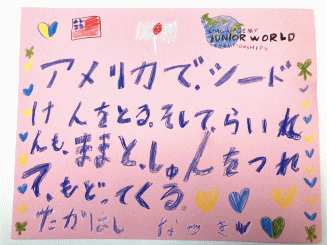 IMG ACADEMY
JUNIOR WORLD
CHAMPIONSHIPS
アメリカで、シード
けんをとる。そして、らいね
んも、ままと、しゅんをつれ
て、もどってくる。
たかはし なつき